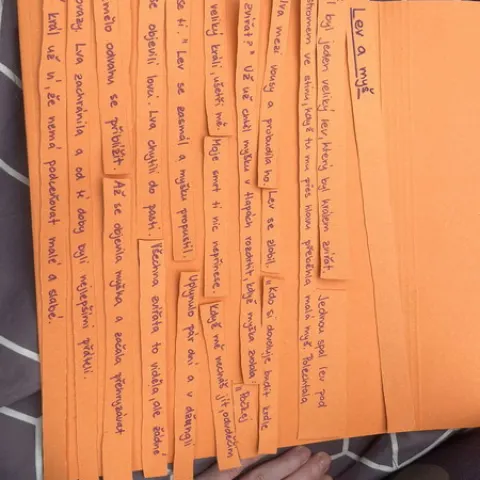 Lev a myš
l byl jeden veliký lev, který byl králem zvířat. Jednou spal lev pod
stromem ve stínu, když tu mu přes hlavu přeběhla malá myš. Polechtala
lva mezi vousy a probudila ho. Lev se zlobil. "Kdo si dovoluje budit krále
zvířat?" Už už chtěl myšku v tlapách rozdrtit, když myška zvolala: "Počkej
veliký králi, ušetři mě. Moje smrt ti nic nepřinese. Když mě necháš jít, odvděčím
se ti." Lev se zasmál a myšku propustil. Uplynulo pár dní a v džungli
se objevili lovci. Lva chytili do pasti. Všechna zvířata to viděla, ale žádné
nemělo odvahu se přiblížit. Až se objevila myška a začala přehryzávat
provazy. Lva zachránila a od té doby byli nejlepšími přáteli.
král už ví, že nemá podceňovat malé a slabé.